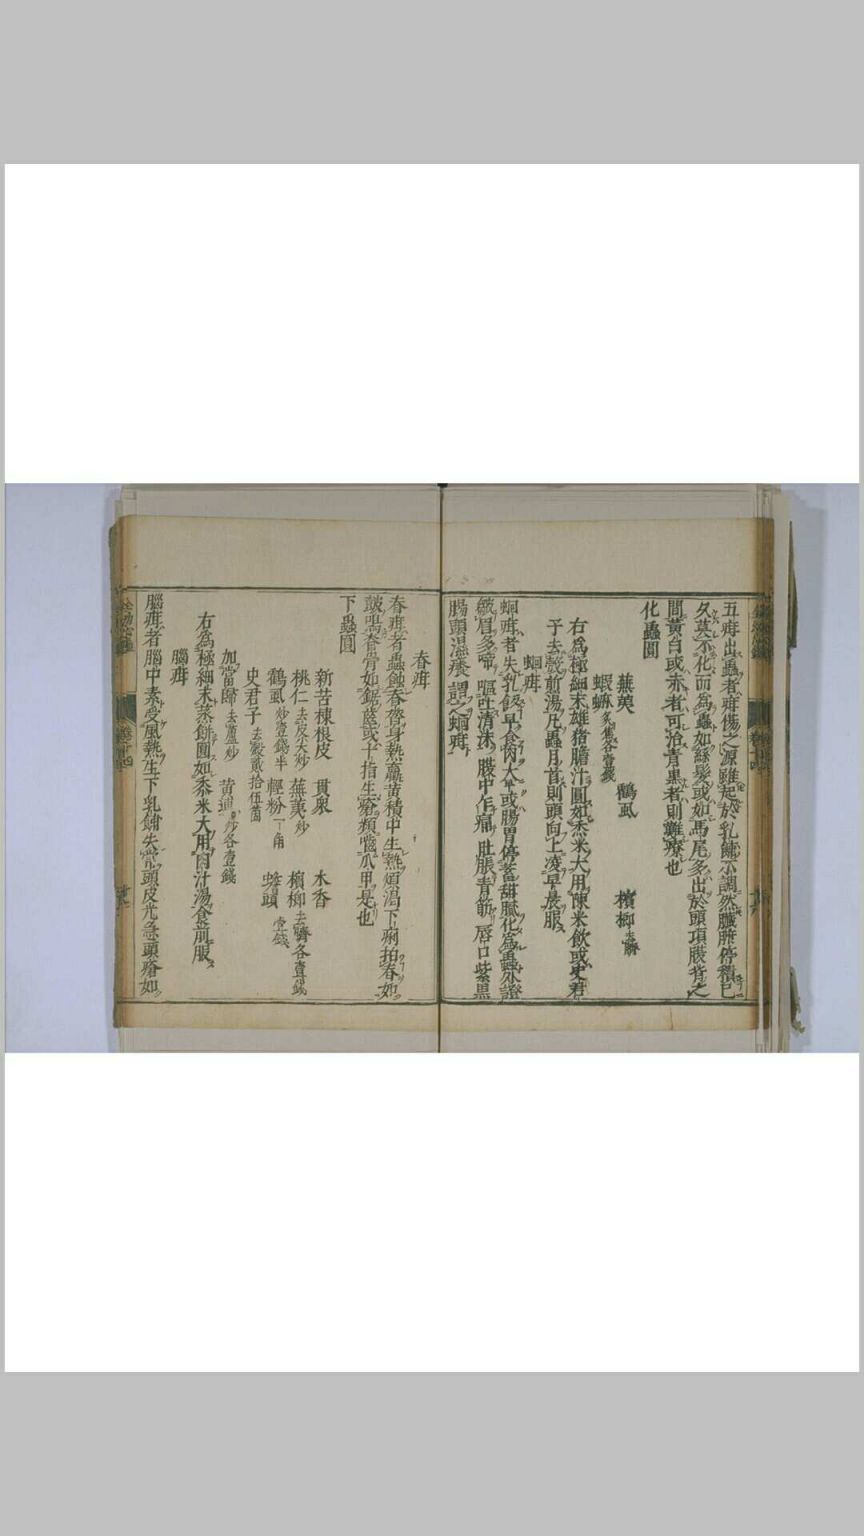 五疳出蟲者疳傷之源雖起於乳餔不調然臟腑停積已
久莫不化而為蟲如絲髮或如馬尾多出於頭項腹背之
間黃白或赤者可治青黑者則難療也
化蟲圓
蕪荑 鶴虱 檳榔
各壹錢
右為極細末雄猪膽汁圓如黍米大用陳米飲或史君
子去殼煎湯凡蟲月首則頭向上凌早晨服
蛔疳
蛔疳者失乳飯早食肉太早或腸胃停蓄甜膩化為蟲外證
皺眉多啼嘔吐清沫腹中作痛肚脹青筋唇口紫黑
腸頭濕癢謂之蛔疳
脊疳
脊疳者蟲蝕脊膂身熱羸黃積中生熱煩渴下痢拍脊如
鼓鳴脊骨如鋸齒或十指生瘡頻嚙爪甲是也
下蟲圓
新苦楝根皮 貫衆 木香
桃仁去皮尖炒 蕪荑炒 檳榔各壹錢
鶴虱炒壹錢半 輕粉一角 蟾頭壹錢
史君子去殼貳拾伍箇
加當歸去蘆炒 黃連炒各壹錢
右為極細末蒸餅圓如黍米大用肉汁湯食前服
腦疳
腦疳者腦中素受風熱生下乳餔失常頭皮光急頭瘡如